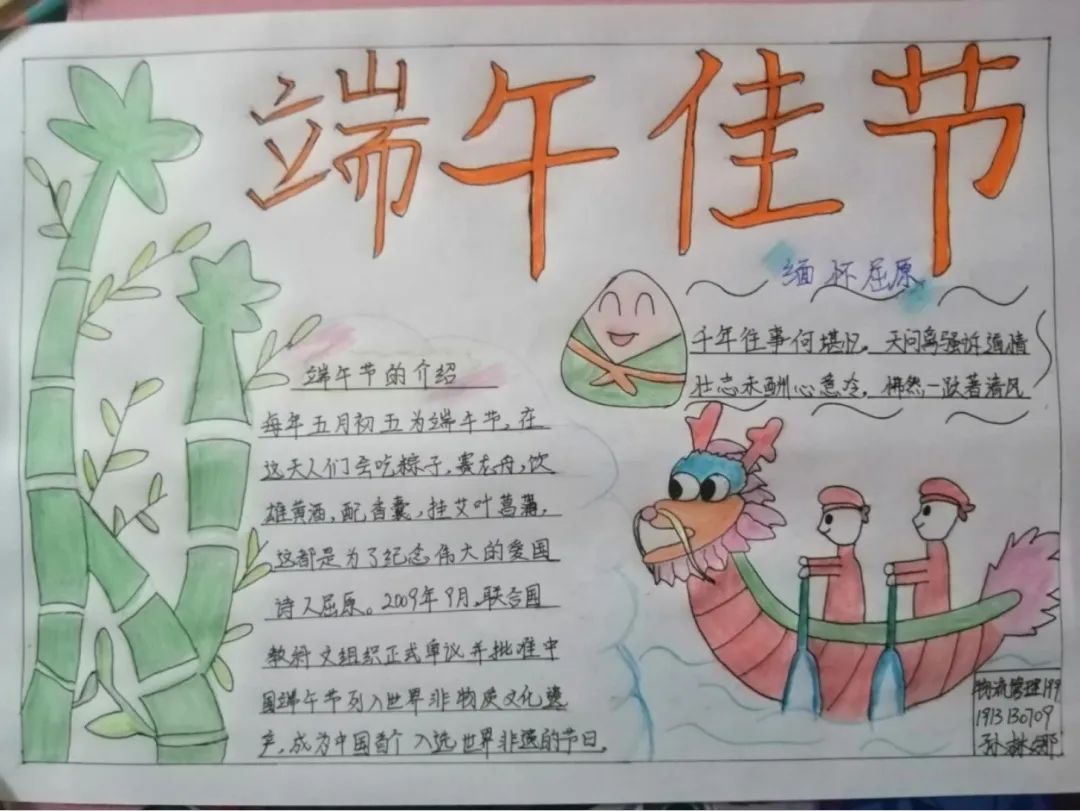 端午佳节
缅怀屈原
千年往事何堪忆，天问离骚诉通情
壮志未酬心意冷，怫然一跃著清风
端午节的介绍
每年五月初五为端午节，在
这天人们会吃粽子，赛龙舟，饮
雄黄酒，配香囊，挂艾叶菖蒲，
这都是为了纪念伟大的爱国
诗人屈原。2009年9月，联合国
教科文组织正式审议并批准中
国端午节列入世界非物质文化遗
产，成为中国首个入选世界非遗的节日。
物流管理199
1913130709
孙琳娜